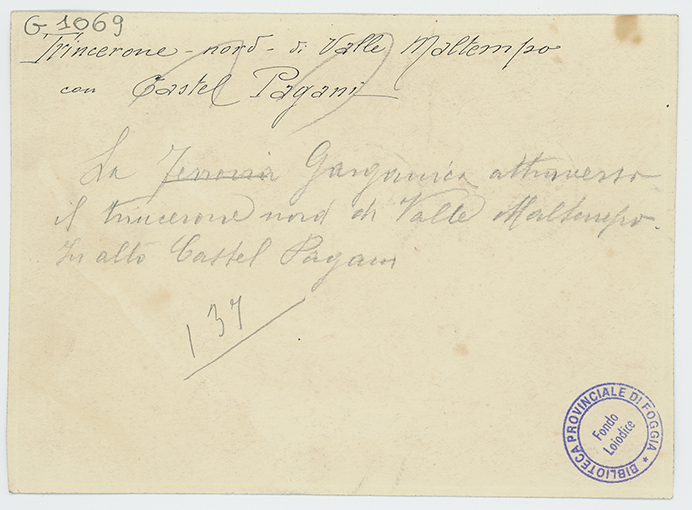 G. 1069
Trincerone - nord - di Valle Maltempo
con Castel Pagani
La Ferrovia Garganica attraverso
il trincerone nord di Valle Maltempo.
In alto Castel Pagani
137
BIBLIOTECA PROVINCIALE DI FOGGIA *
Fondo
Loiodice